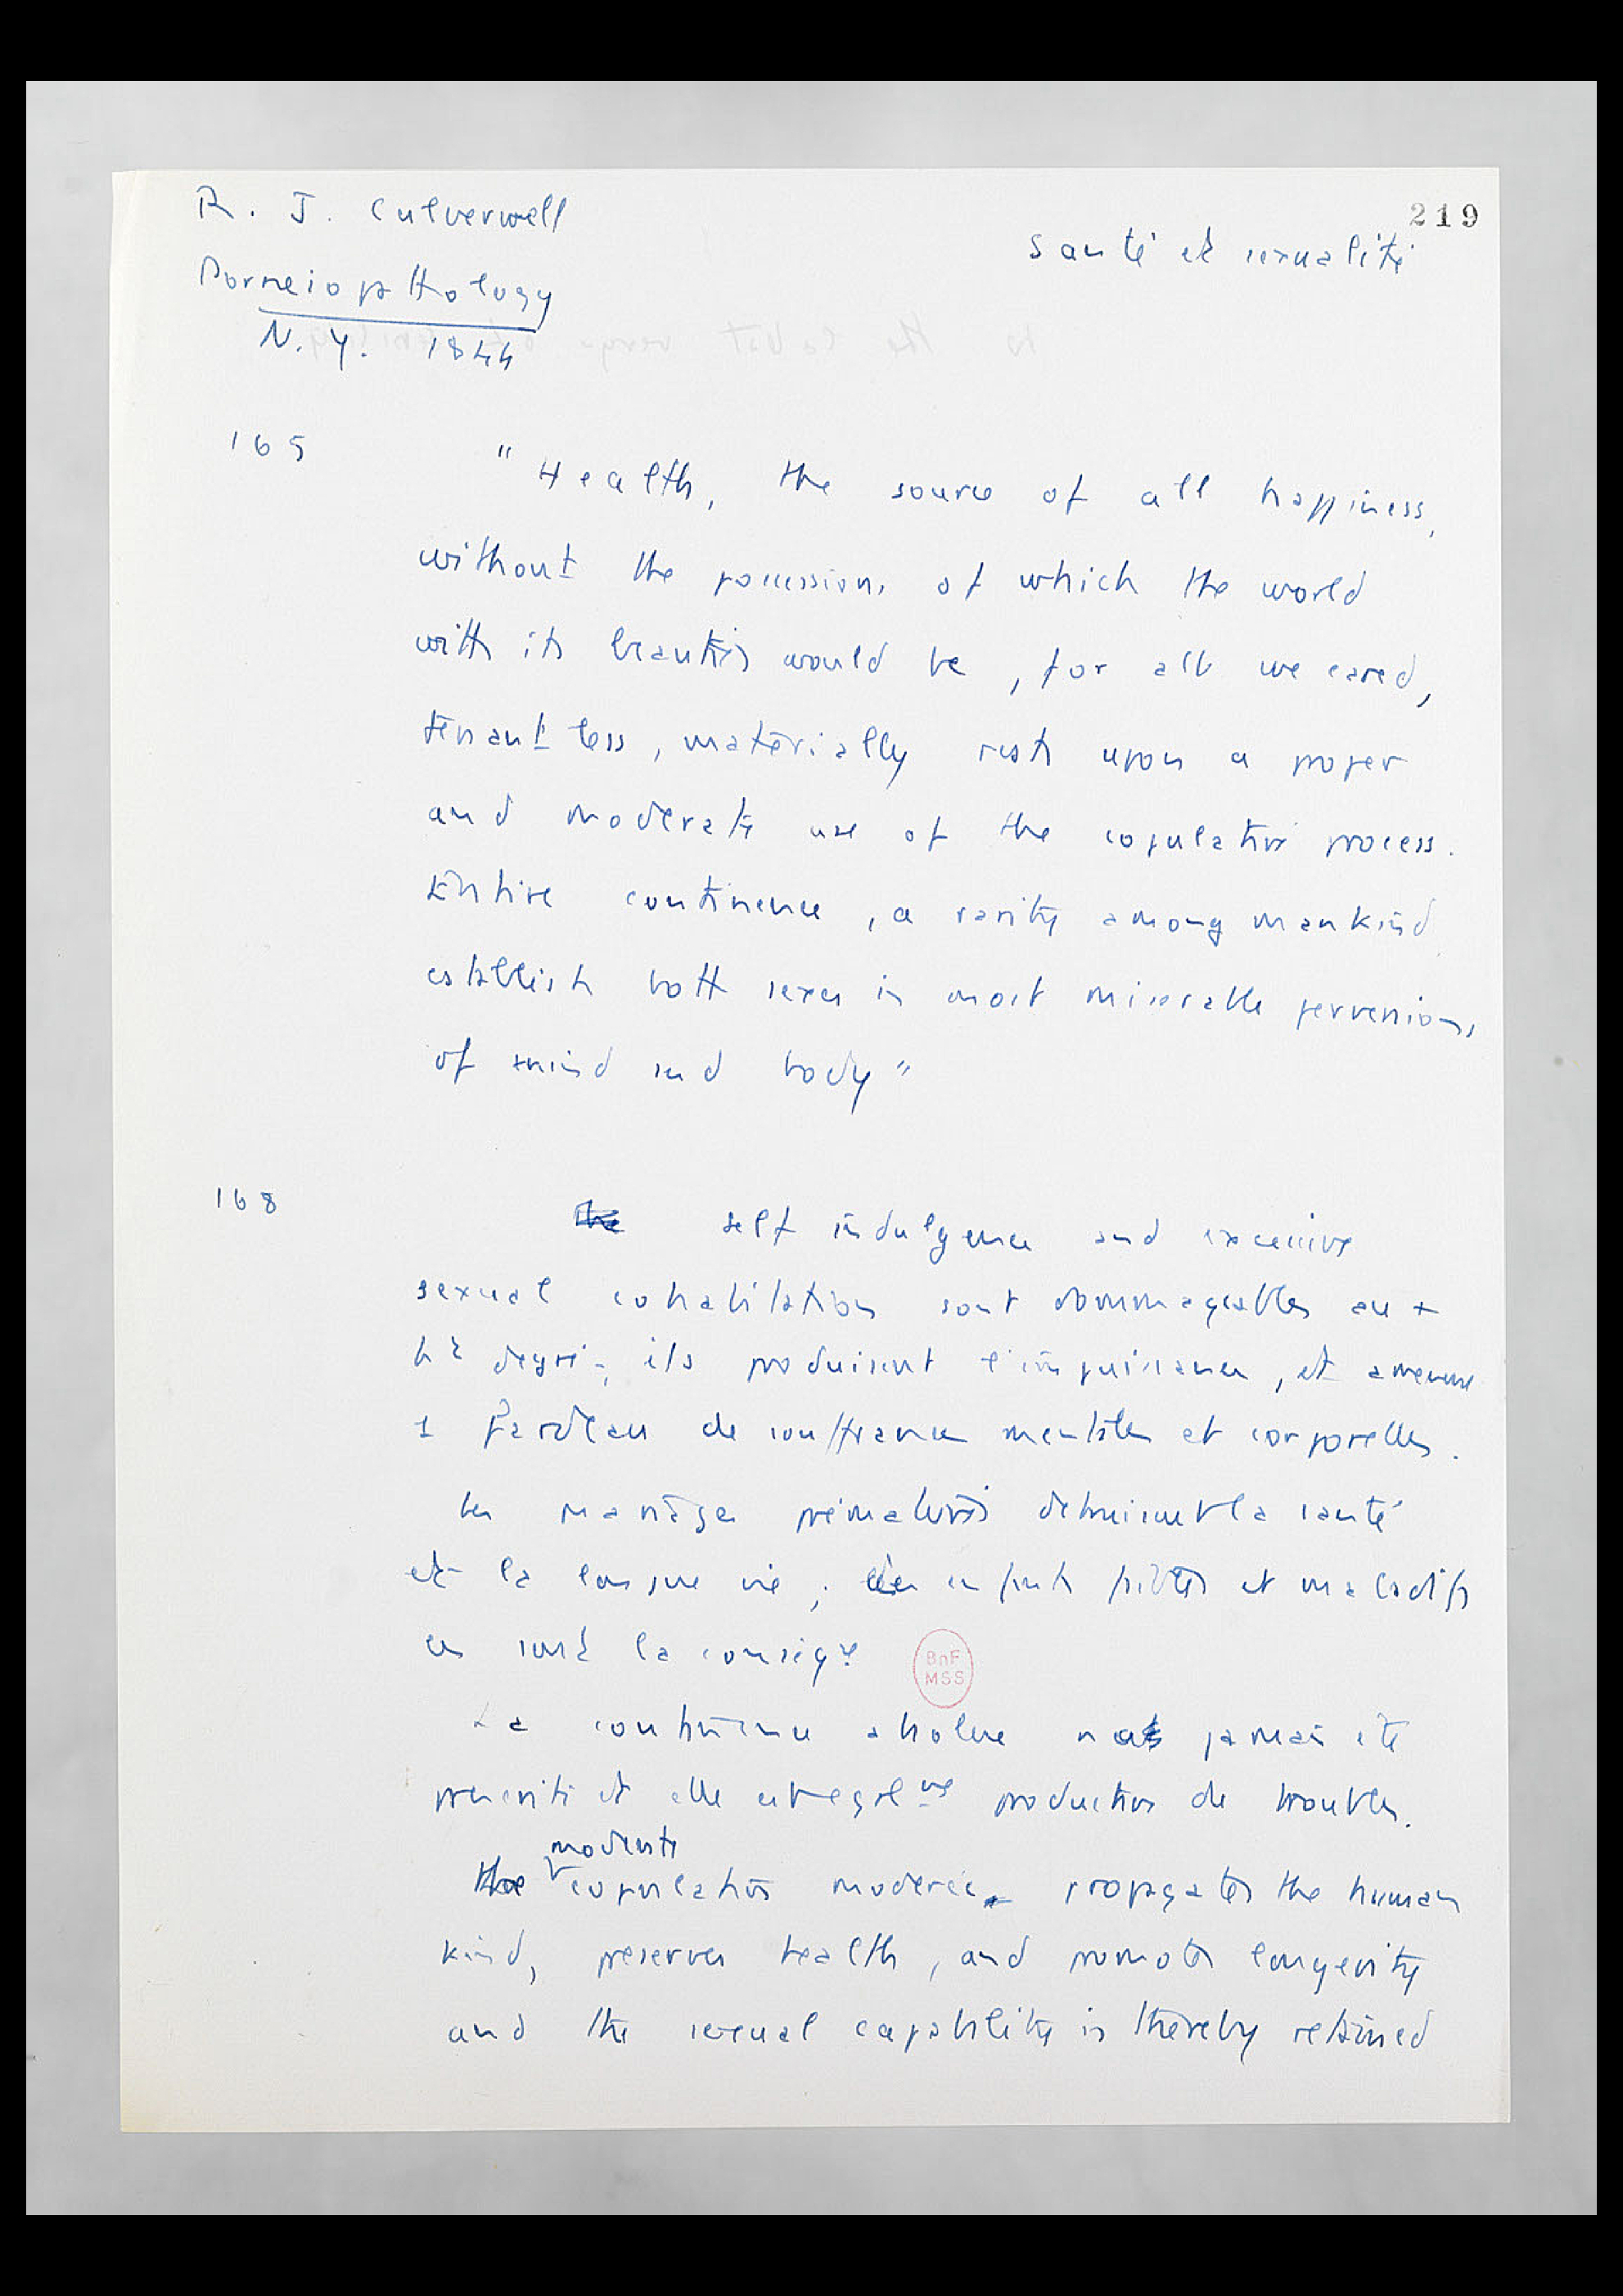 R. J. Culverwell
219
Santé et sexualité
Porneiopathology
N.Y. 1844
165
"Health, the source of all happiness,
without the possession, of which the world
with its beauties would be, for all we cared,
tenantless, materially rests upon a proper
and moderate use of the copulative process.
Entire continence, a rarity among mankind
establish both sexes in most miserable perversions
of mind and body"
168
the self indulgence and excessive
sexual cohabitation sont dommageables au +
ht degré; ils produisent l'impuissance, et amènent
1 fardeau de souffrances mentales et corporelles.
Les mariages prématurés détruisent la santé
et la longue vie; des enfants faibles et maladifs
en sont la conséqce
BnF
MSS
La continence absolue n'a jamais été
prescrite et elle est égalmt productive de troubles.
moderate
The copulation moderee propagates the human
kind, preserves health, and promotes longevity
and the sexual capability is thereby retained